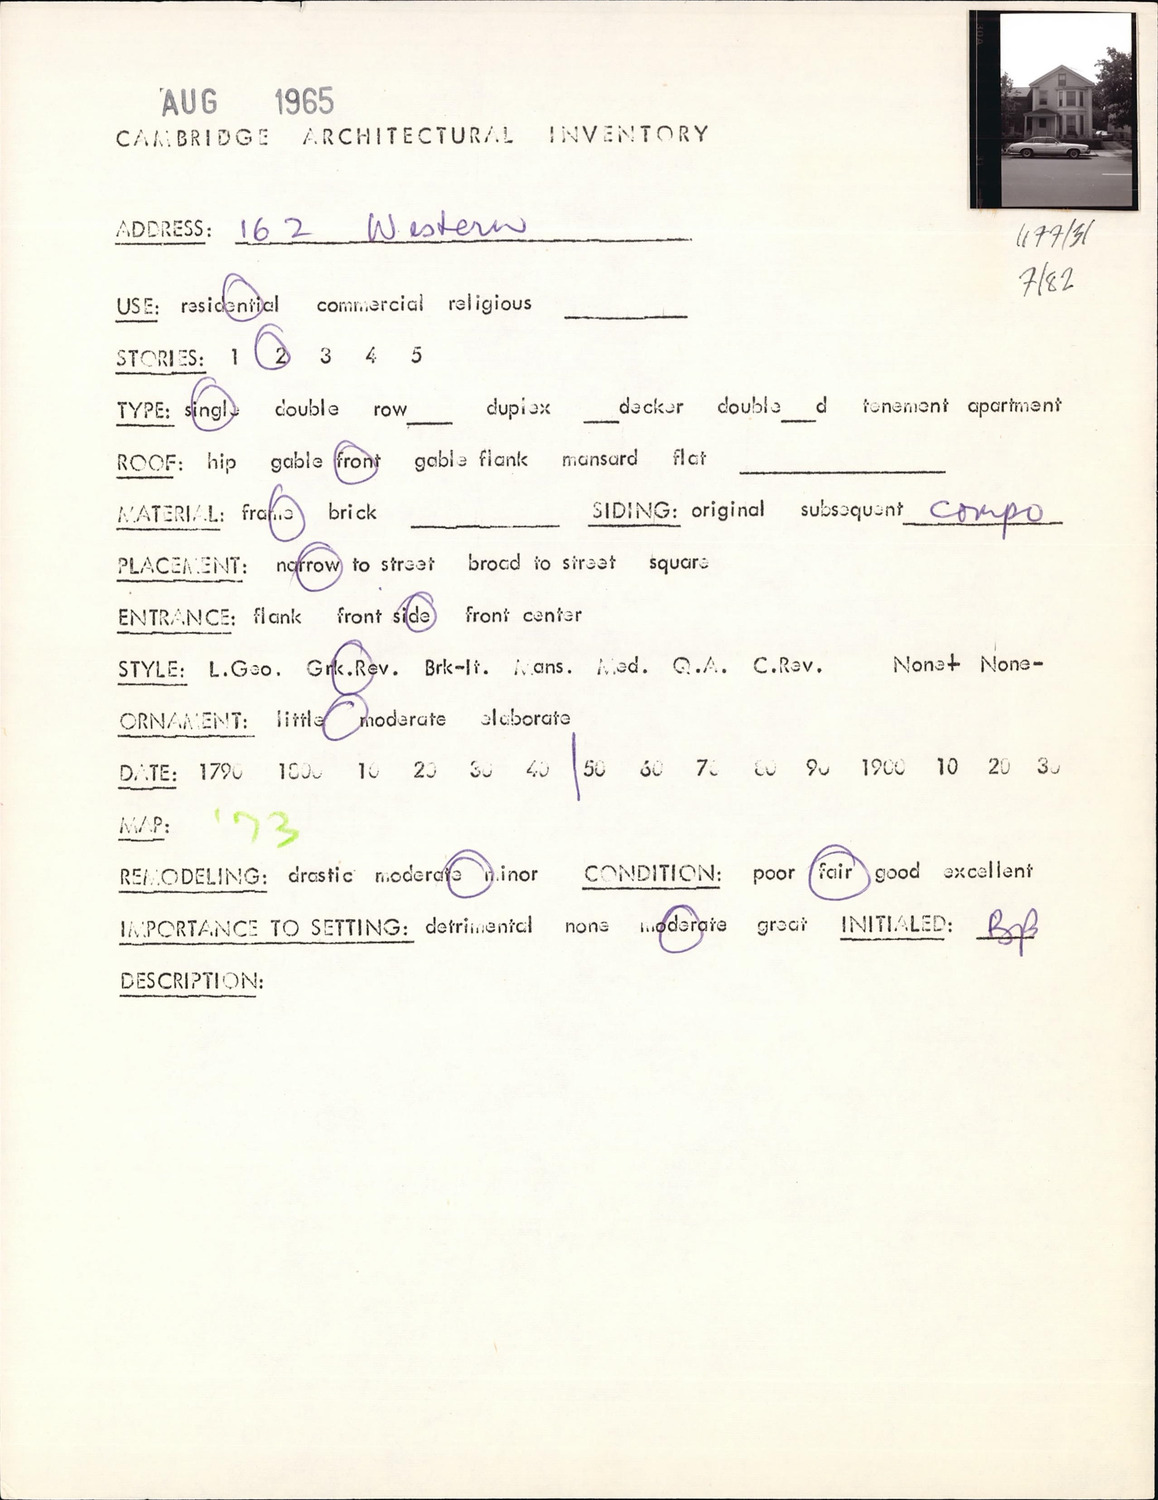 AUG 1965
CAMBRIDGE ARCHITECTURAL INVENTORY
7/82
ADDRESS: 162 Western
USE: residential commercial religious
STORIES: 1 2 3 4 5
TYPE: single double row____ duplex ____decker double____d tenement apartment
ROOF: hip gable front gable flank mansard flat
MATERIAL: frame brick ____ SIDING: original subsequent compo
PLACEMENT: narrow to street broad to street square
ENTRANCE: flank front side front center
STYLE: L.Geo. Grk.Rev. Brk-It. Mans. Med. Q.A. C.Rev. None+ None-
ORNAMENT: little moderate elaborate
DATE: 1790 1800 10 20 30 40 50 60 70 80 90 1900 10 20 30
MAP: '73
REMODELING: drastic moderate minor CONDITION: poor fair good excellent
IMPORTANCE TO SETTING: detrimental none moderate great INITIALED: BβB
DESCRIPTION: